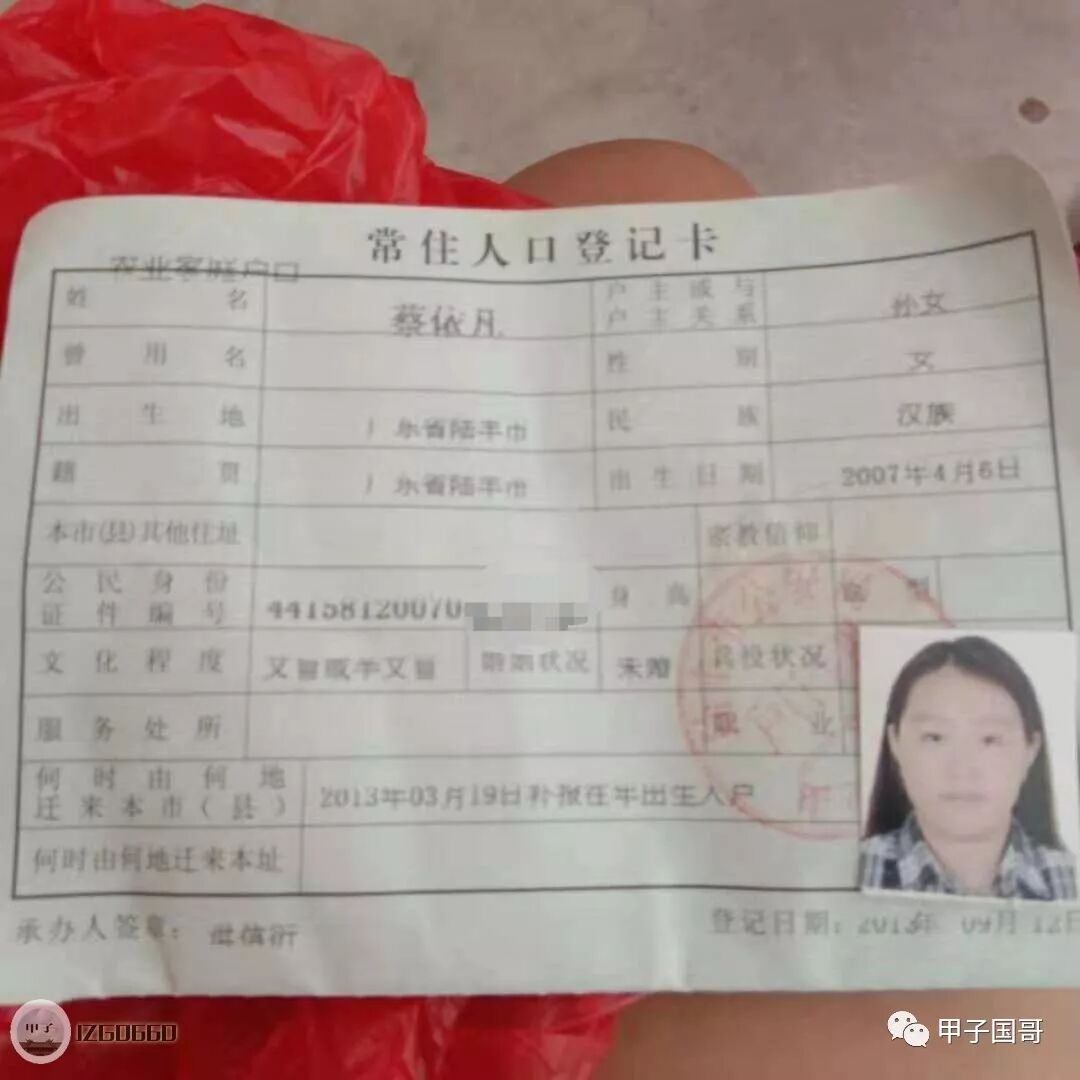 常住人口登记卡
农业家庭户口
姓名 蔡依凡 户主或与户主关系 孙女
曾用名 性别 女
出生地 广东省陆丰市 民族 汉族
籍贯 广东省陆丰市 出生日期 2007年4月6日
本市(县)其他住址 宗教信仰
公民身份证件编号 44158120070 身高
文化程度 文盲或半文盲 婚姻状况 未婚 兵役状况
服务处所 职业
何时由何地迁来本市(县) 2013年03月19日补报往年出生入户
何时由何地迁来本址
承办人签章： 登记日期：2013年 09月 12日
甲子
甲子国哥